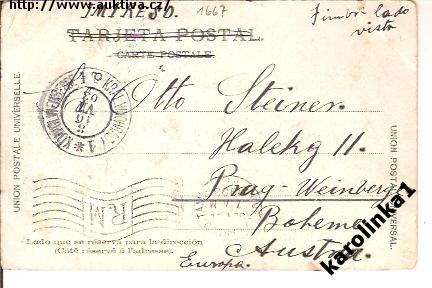 http://www.auktiva.cz/
IMPRESO.
1667
Timbre lado
vista
TARJETA POSTAL.
CARTE POSTALE.
Otto Steiner.
Halekg 11.
Prag-Weinberg
Bohema
Austria.
Europa.
UNION POSTALE UNIVERSELLE.
UNION POSTAL UNIVERSAL.
R.M
Lado que se réserva para la dirección
(Côté réservé á l'adresse).
karolinka1